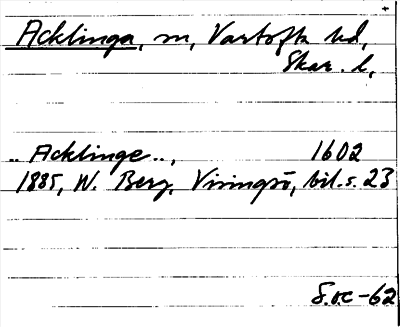 Acklinga, sn, Vartofta hd,
Skar. l,
.. Acklinge .., 1602
1885, W. Berg, Visingsö, bil. s. 23
S.oc -62